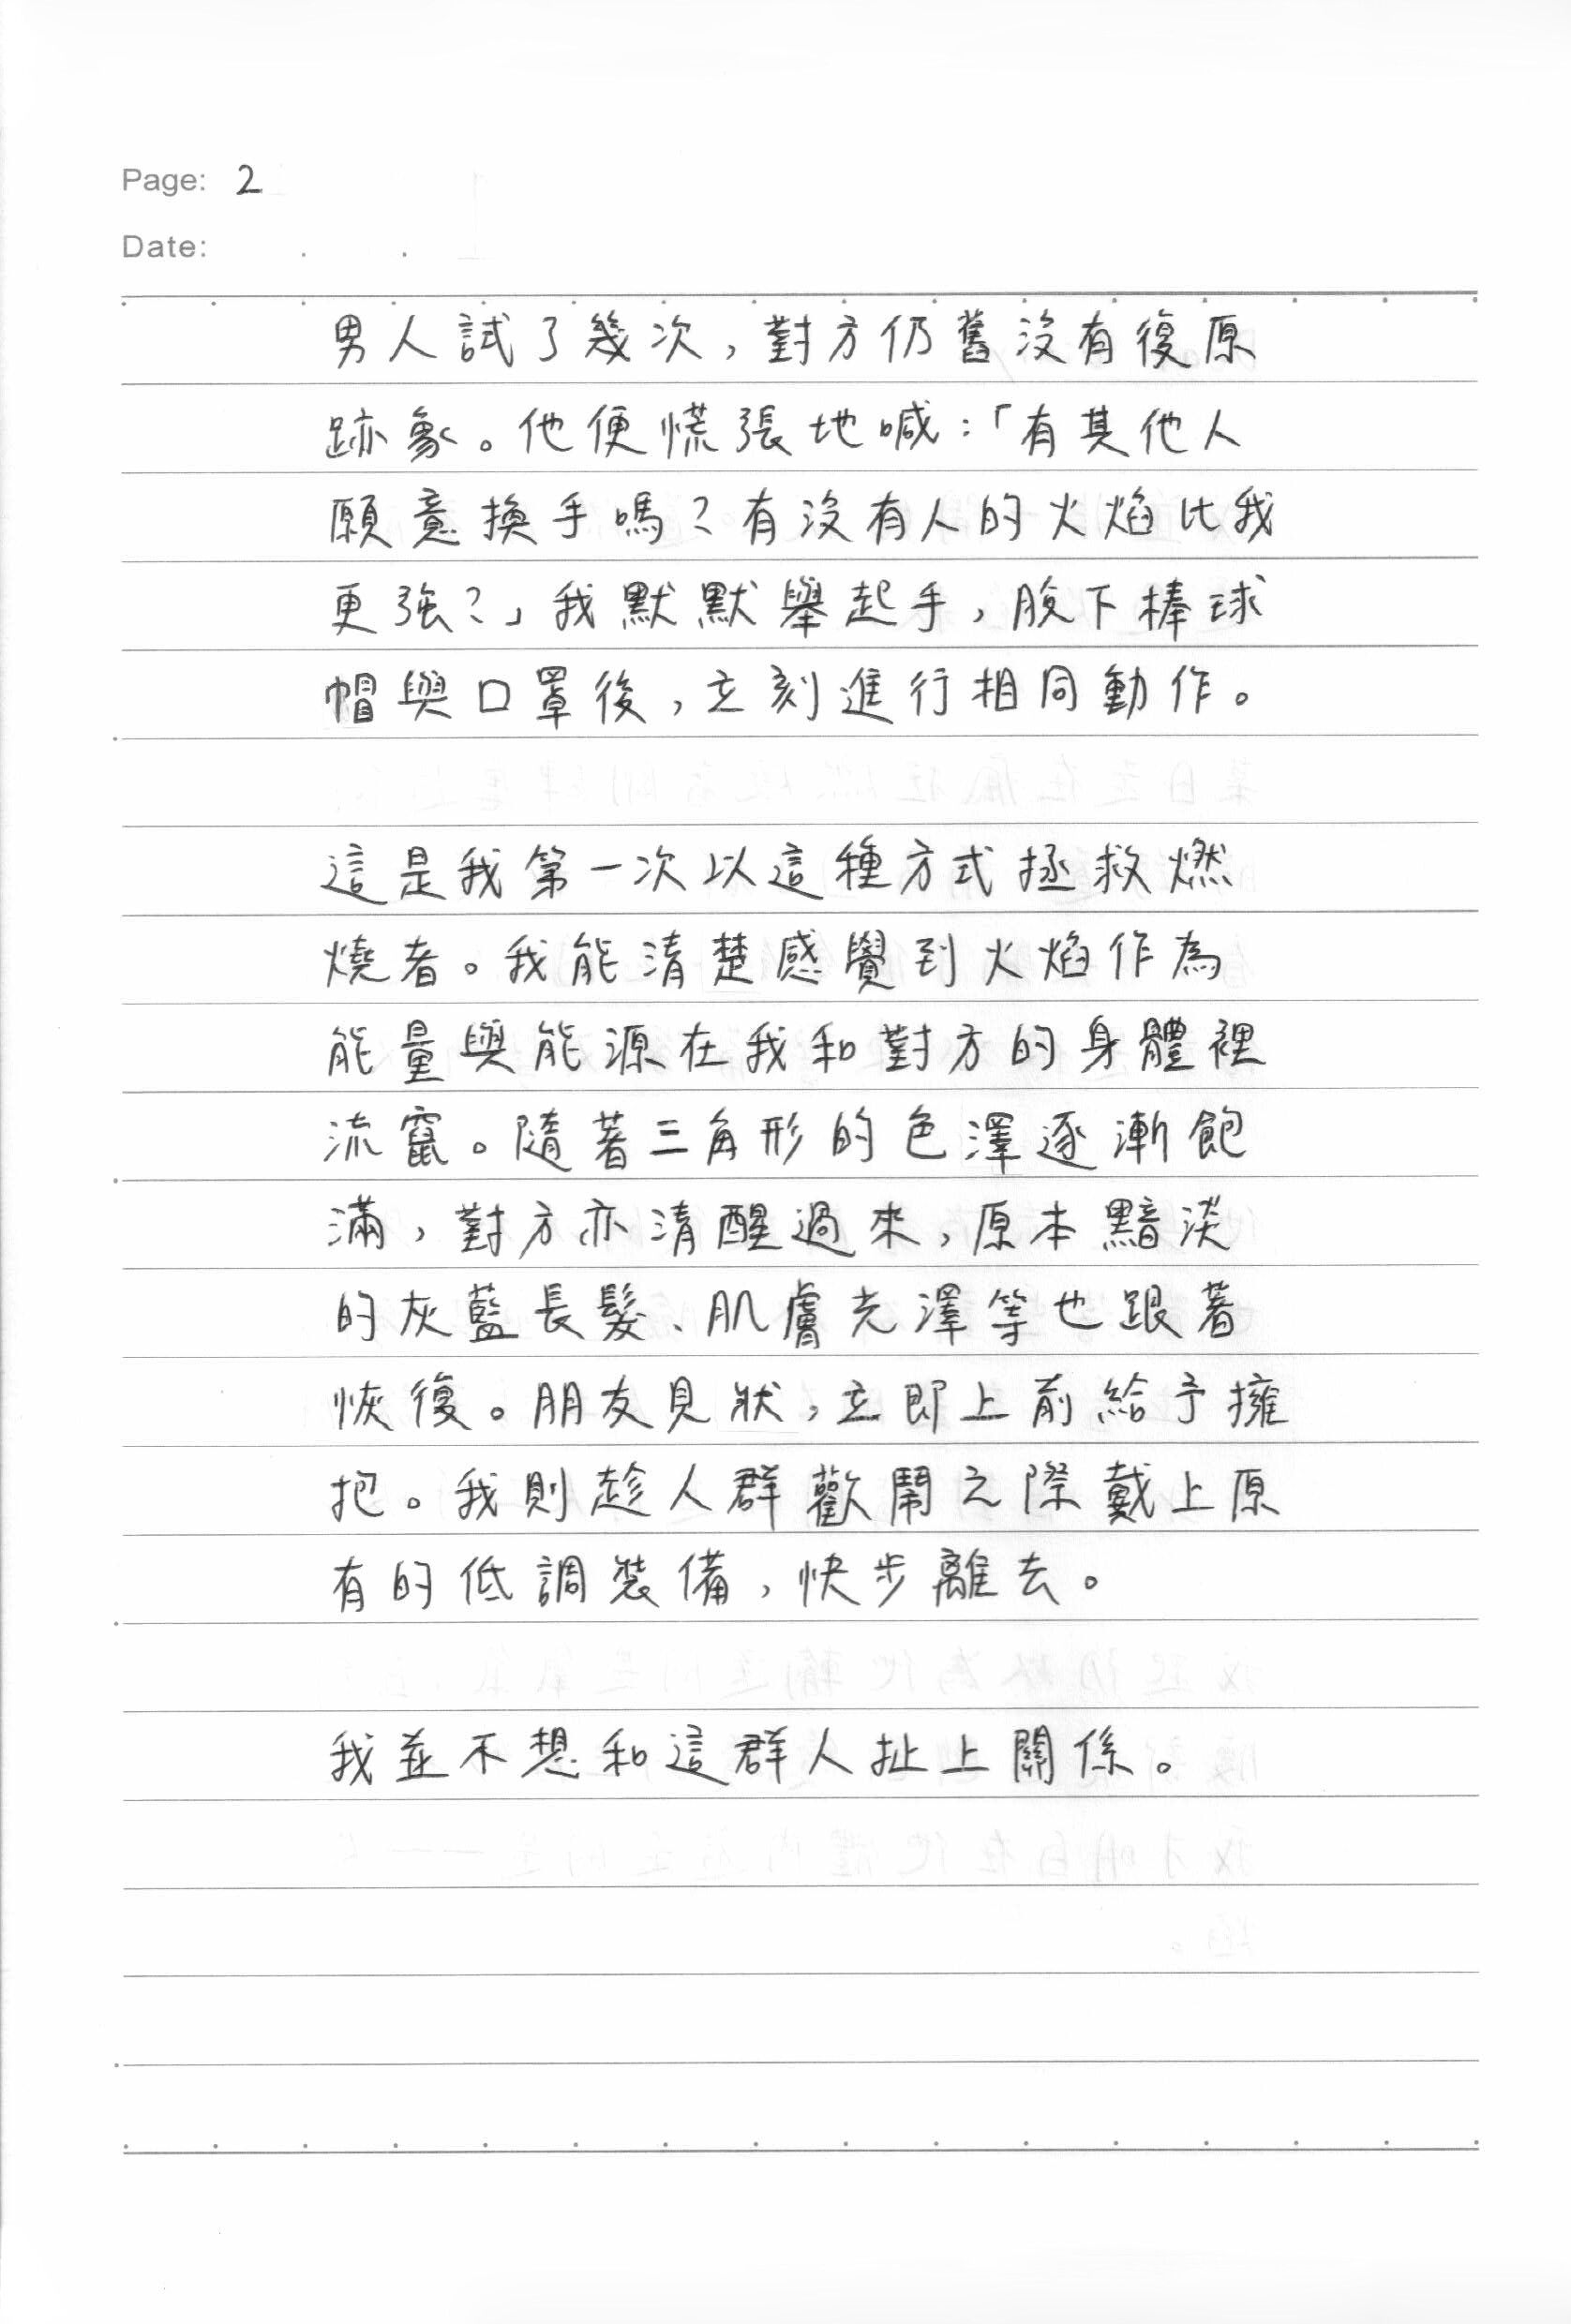 Page: 2
Date: . .
男人試了幾次，對方仍舊沒有復原
跡象。他便慌張地喊：「有其他人
願意換手嗎？有沒有人的火焰比我
更強？」我默默舉起手，脫下棒球
帽與口罩後，立刻進行相同動作。
這是我第一次以這種方式拯救燃
燒者。我能清楚感覺到火焰作為
能量與能源在我和對方的身體裡
流竄。隨著三角形的色澤逐漸飽
滿，對方亦清醒過來，原本黯淡
的灰藍長髮、肌膚光澤等也跟著
恢復。朋友見狀，立即上前給予擁
抱。我則趁人群歡鬧之際戴上原
有的低調裝備，快步離去。
我並不想和這群人扯上關係。